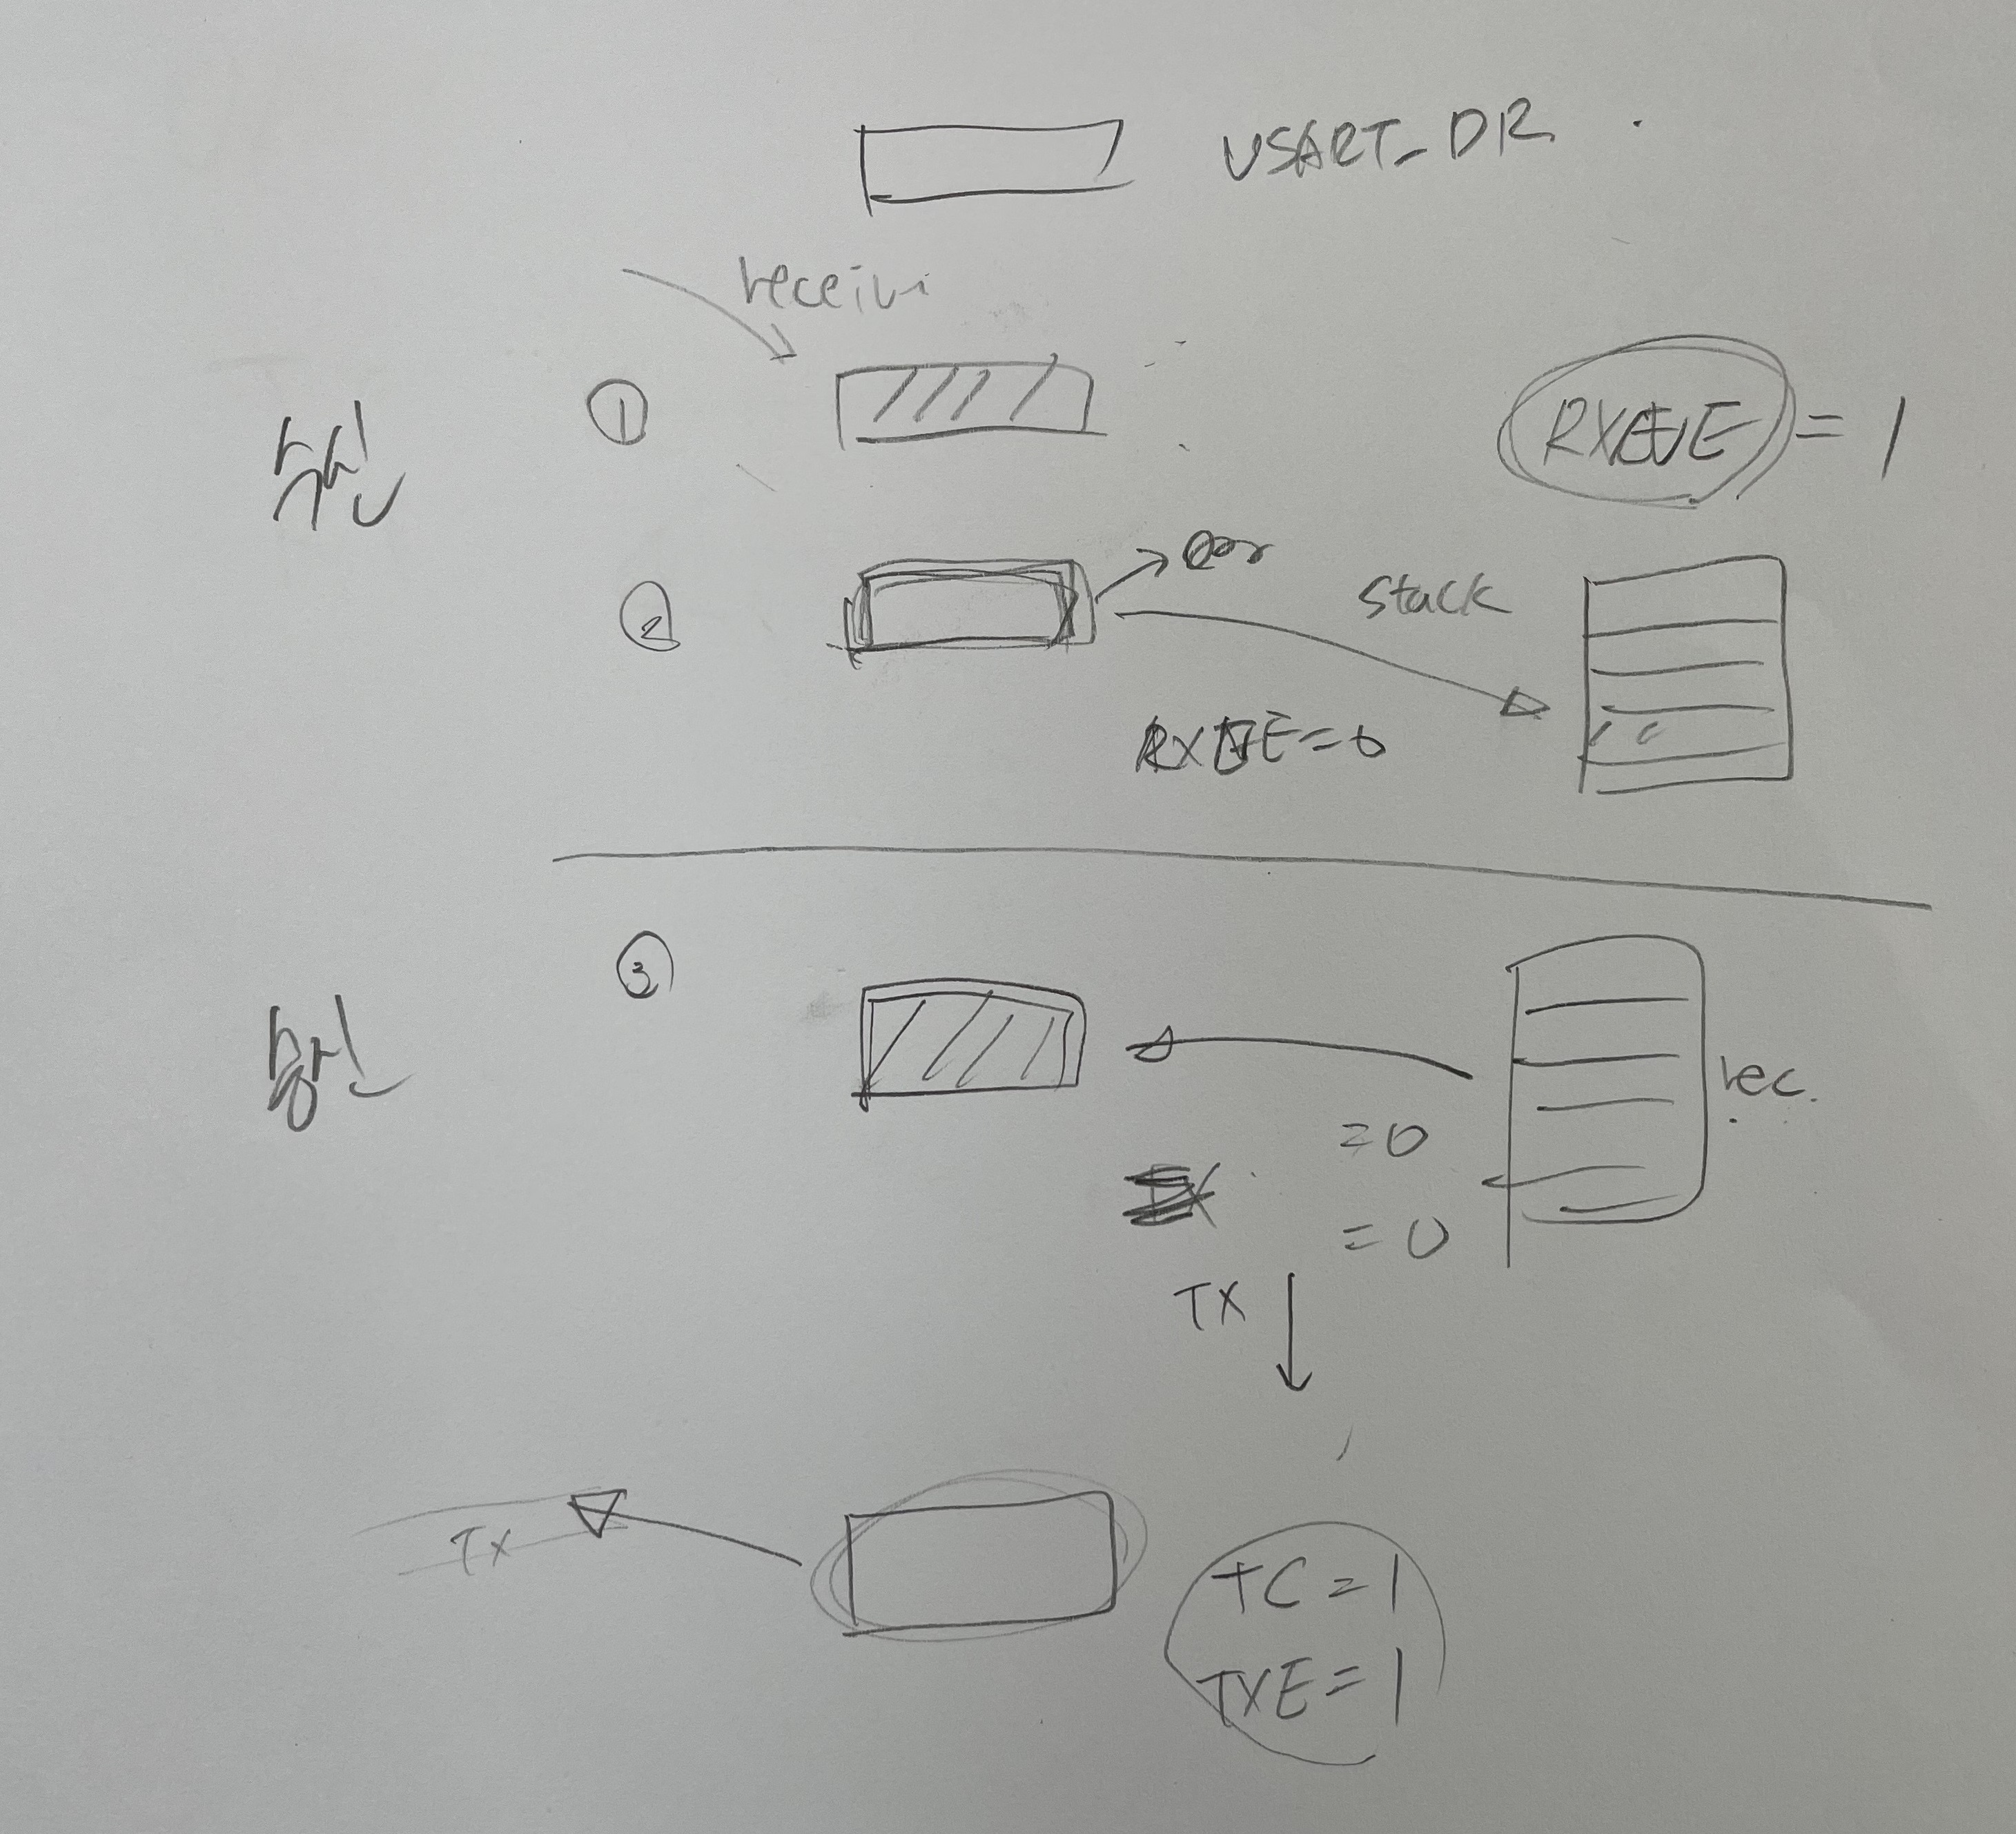 USART_DR
receivi
①
수신
RXNE = 1
②
stack
RXNE=0
③
송신
rec.
=0
=0
TX
TX
TC=1
TXE=1